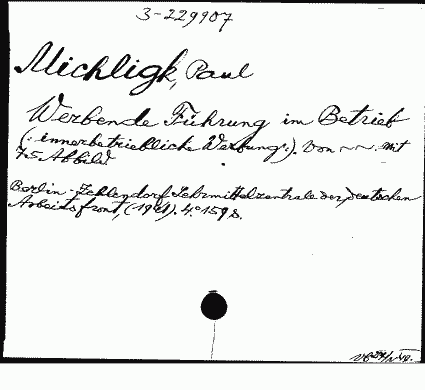 3-229907
Michligk, Paul
Werbende Führung im Betrieb
(: innerbetriebliche Werbung:). Von ~~. Mit
75 Abbild
Berlin-Zehlendorf, Lehrmittelzentrale der deutschen
Arbeitsfront, (1941). 4° 159 S.